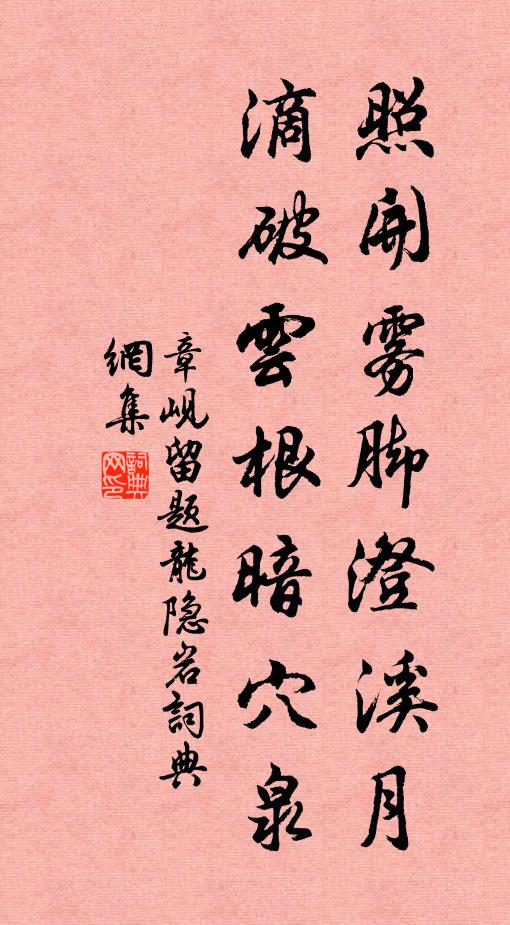 照開雾脚澄溪月
滴破雲根暗穴泉
章岘留题龍隐岩詞典
網集
詞典网印